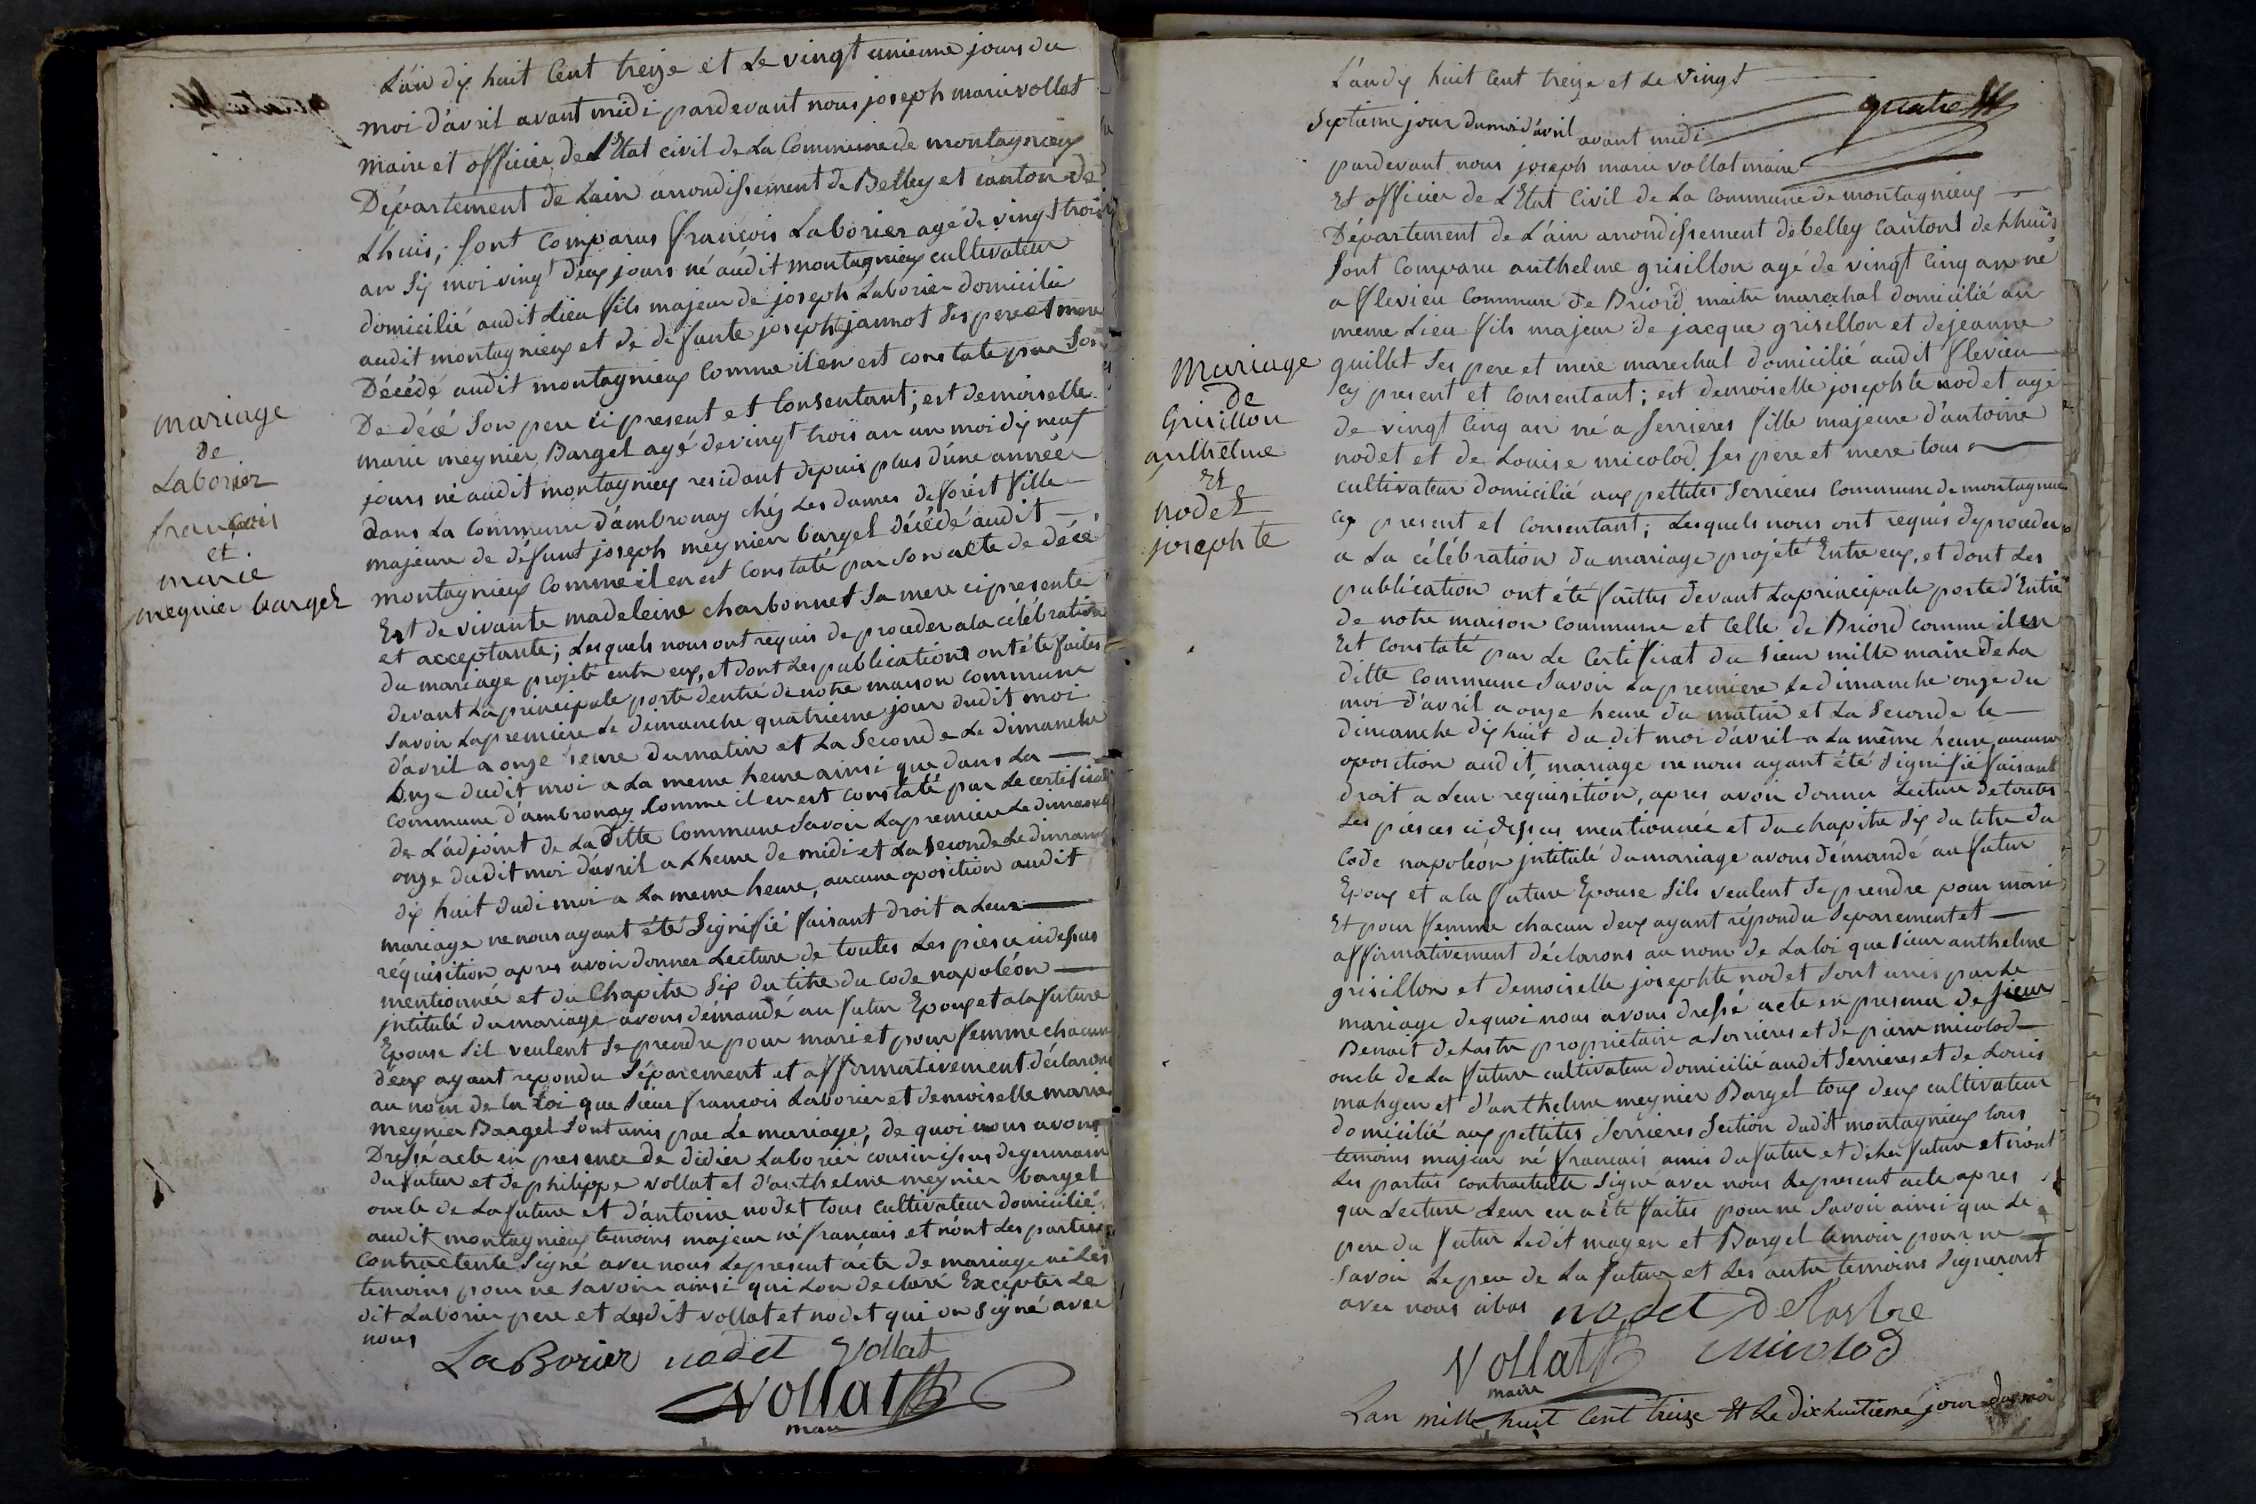 L'an dix huit Cent treize et Le vingt unieme jours du
moi d'avril avant midi pardevant nous joseph marie vollat
maire et officier de L'Etat civil de La Commune de montagnieux
Département de Lain arrondissement de Belley et canton de
Lhuis; sont Comparus françois Laborier agé de vingt trois
an six moi vingt deux jours né audit montagnieux cultivateur
domicilié audit Lieu fils majeur de joseph Laborier domicilié
audit montagnieux et de defunte josephte jannot ses pere et mere
Décédé audit montagnieux Comme il en est constaté par son
De décé son pere ci present et Consentant; est demoiselle
marie meynier Bargel agé de vingt trois an un moi dix neuf
jours né audit montagnieux residant depuis plus d'une année
dans La Commune d'ambronay chéz Les dames deforést fille
majeure de défunt joseph meynier bargel décédé audit
montagnieux Comme il en est constaté par son acte de décé
Est de vivante madeleine charbonnet sa mere ci presente
et acceptante; Lesquels nous ont requis de proceder a la célébration
du mariage projeté entre eux, et dont Les publications ont été faites
devant La principale porte dentré de notre maison commune
savoir La premiere Le dimanche quatrieme jour dudit moi
d'avril a onze heure du matin et La seconde Le dimanche
Onze dudit moi a La meme heure ainsi que dans La
commune d'ambronay Comme il en est constaté par Le certificat
de L'adjoint de La ditte Commune savoir La premiere Le dimanche
onze dudit moi d'avril a Lheure de midi et La seconde Le dimanche
dix huit dudi moi a La meme heure, aucune oposition audit
mariage ne nous ayant été signifié faisant droit a Leur
réquisition apres avoir donner Lecture de toutes Les piese cidessus
mentionnée et du Chapitre six du titre du Code napoléon
jntitulé du mariage avons démandé au futur Epoux et a la future
Epouse sil veulent se prendre pour mari et pour femme chacun
d'eux ayant repondu séparement et affirmativement déclarons
au nom de la Loi que sieur francois Laborier et demoiselle marie
meynier Bargel sont unis par Le mariage, de quoi nous avons
Dressé acte en presence de didier Laborier cousin issus de germain
du futur et de philippe vollat et d'anthelme meynier bargel
oncle de La future et d'antoine nodet tous Cultivateur domicilié
audit montagnieux temoins majeur né francais et n'ont Les parties
Contractente signé avec nous Le present acte de mariage ni Les
temoins pour ne savoir ainsi qui Lon declaré Excepter Le
dit Laborier pere et Lesdit vollat et nodet qui on signé avec
nous
LaBorier nodet Vollat
Vollat
maire
mariage
de
Laborier
françois
et
marie
megnier bargel
L'an dix huit Cent treize et Le vingt
quatre
septieme jour du moi d'avril avant midi
pardevant nous joseph marie vollat maire
Et officier de L'Etat Civil de La Commune de montagnieux
Département de L'ain arrondissement debelley Cantont de Lhuis
sont Comparu anthelme grisillon agé de vingt Cinq an né
a flevieu Commune de Briord maitre marechal domicilié au
meme Lieu fils majeur de jacque grisillon et de jeanne
guillet ses pere et mere marechal domicilié audit flevieu
cy present et Consentant; est demoiselle josephte nodet agé
de vingt Cinq an né a serrieres fille majeure d'antoine
nodet et de Louise micolod ses pere et mere tous
cultivateur domicilié aux pettites serrieres Commune de montagnieu
cy present et Consentant; Lesquels nous ont requis de proceder
a La célébration du mariage projeté Entre eux, et dont Les
publication ont été faittes devant La principale porte d'Entré
de notre maison Commune et Celle de Briord comme il en
Est constaté par Le Certificat du sieur mille maire de La
ditte Commune savoir La premiere Le dimanche onze du
moi d'avril a onze heure du matin et La seconde le
dimanche dix huit du dit moi d'avril a La même heure, aucune
oposition audit mariage ne nous ayant été signifié faisant
droit a Leur requisition, apres avoir donner Lecture de toutes
Les pièces ci dessus mentionnée et du chapitre six du titre du
Code napoléon jntitulé du mariage avons démandé au futur
Epoux et a la future Epouse sils veulent se prendre pour mari
Et pour femme chacun deux ayant répondu séparement et
affirmativement déclarons au nom de La loi que sieur anthelme
grisillon et demoiselle josephte nodet sont unis par Le
mariage de quoi nous avons dressé acte en presence de sieur
Benoit delastre propriétaire a serrieres et de pierre micolod
oncle de La future cultivateur domicilié audit serrieres et de Louis
mahyer et d'anthelme meynier Bargel tous deux cultivateur
domicilié aux pettites serrieres section dudit montagnieux tous
temoins majeur né francais amis du futur et de la future et n'ont
Les parties contractente signé avec nous Le present acte apres
que Lecture Leur en a été faites pour ne savoir ainsi que Le
pere du futur Ledit mayer et Bargel temoin pour ne
savoir Le pere de La future et Les autre temoins signeront
avec nous abas nodet Delastre
Vollat Micolod
maire
Lan mille huit Cent treize Et Le dix huitieme jour du moi
Mariage
De
Grisillon
anthelme
Et
nodet
josephte